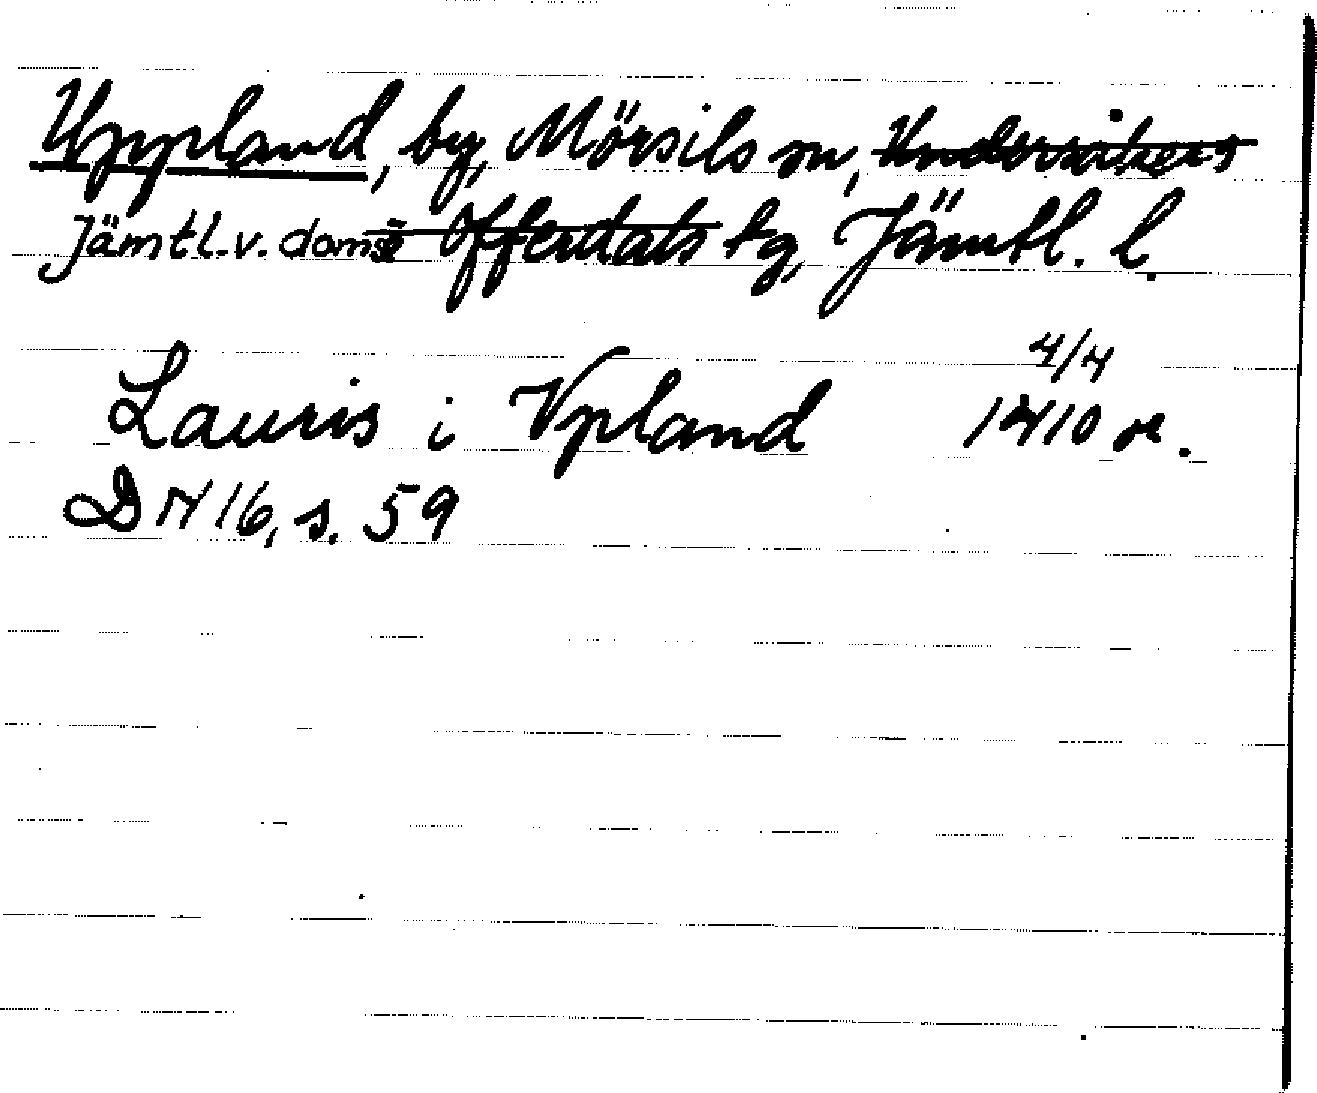 Uppland, by, Mörsils sn, Undersåkers
Jämtl.v. doms Offerdals tg, Jämtl. l.
4/4
Lauris i Vpland 1410 or.
DN 16, s. 59